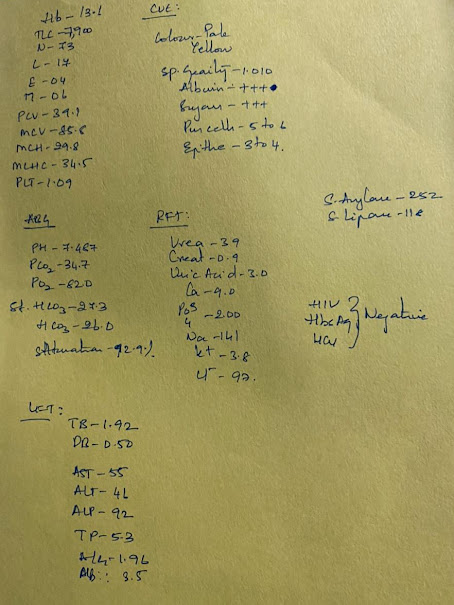 Hb - 13.1
TLC - 7,900
N - 73
L - 17
E - 04
M - 06
PCV - 39.1
MCV - 85.6
MCH - 29.8
MCHC - 34.5
PLT - 1.09
CUE:
Colour - Pale
Yellow
Sp. Gravity - 1.010
Albumin - +++
Sugar - +++
Pus cells - 5 to 6
Epithe - 3 to 4.
S. Amylase - 252
S. Lipase - 118
ABG
PH - 7.467
PCO2 - 34.7
PO2 - 62.0
St. HCO3 - 27.3
HCO3 - 26.0
Saturation - 92.9%
RFT:
Urea - 39
Creat - 0.9
Uric Acid - 3.0
Ca - 9.0
PO4 - 2.00
Na - 141
K+ - 3.8
Cl- - 97.
HIV
HbsAg } Negative
HCV
LFT:
TB - 1.92
DB - 0.50
AST - 55
ALT - 46
ALP - 92
TP - 5.3
A/G - 1.96
Alb :: 3.5